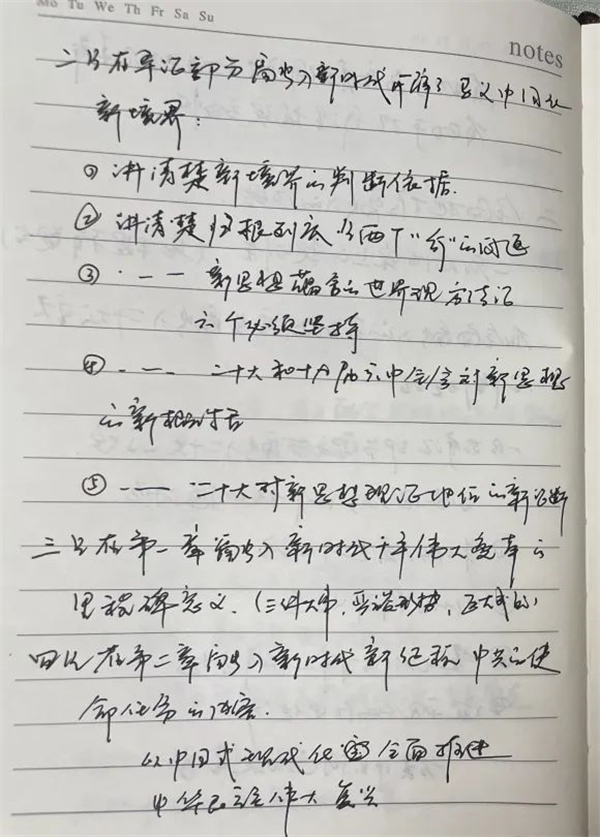 Mo Tu We Th Fr Sa Su
notes
二是在导论部分融入新时代开辟了马义中国化
新境界：
① 讲清楚新境界的判断依据.
② 讲清楚归根到底是两个"行"的问题
③ · — — 新思想蕴含的世界观方法论
六个必须坚持
④ · — — 二十大和十九届六中全会对新思想
的新概括
⑤ · — — 二十大对新思想理论地位的新论断
三是在第一章融入新时代十年伟大变革的
里程碑意义. (三件大事,
四是在第二章融入新时代新征程中共的使
命任务的内容.
以中国式现代化全面推进
中华民族伟大复兴